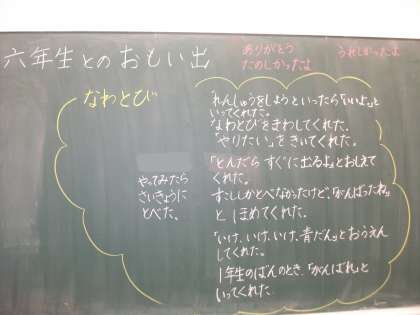 六年生とのおもい出
ありがとう
たのしかったよ
うれしかったよ
なわとび
れんしゅうをしようといったら「いいよ。」と
いってくれた。
なわとびをまわしてくれた。
「やりたい」をきいてくれた。
「とんだら すぐに出るよ」とおしえて
くれた。
すこししかとべなかったけど、「がんばったね」
と ほめてくれた。
「いけ、いけ、いけ、青だん」とおうえん
してくれた。
1年生のばんのとき、「がんばれ」と
いってくれた
やってみたら
さいきょうに
とべた。